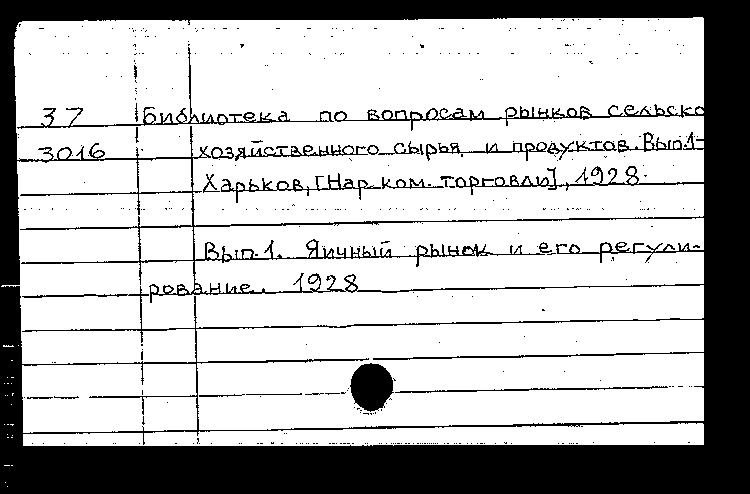 37 Библиотека по вопросам рынков сельско
3016 хозяйственного сырья и продуктов. Вып.1-
Харьков, [Нар. ком. торговли], 1928.
Вып.1. Яичный рынок и его регули-
рование. 1928